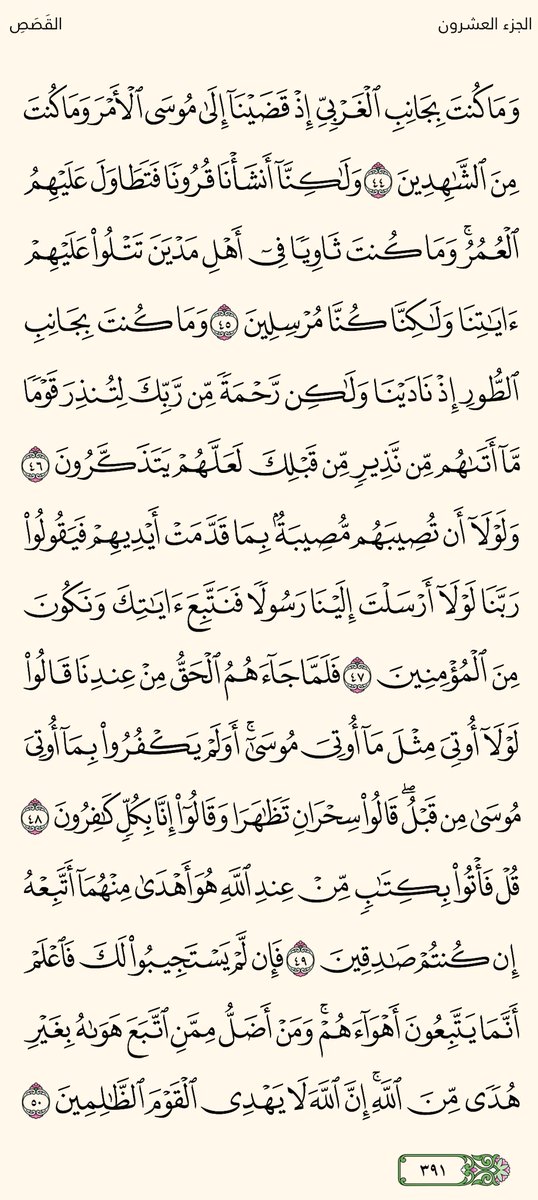 الجزء العشرون
القَصَصِ
وَمَا كُنتَ بِجَانِبِ ٱلْغَرْبِيِّ إِذْ قَضَيْنَآ إِلَىٰ مُوسَى ٱلْأَمْرَ وَمَا كُنتَ
مِنَ ٱلشَّٰهِدِينَ ٤٤ وَلَٰكِنَّآ أَنشَأْنَا قُرُونًا فَتَطَاوَلَ عَلَيْهِمُ
ٱلْعُمُرُ ۚ وَمَا كُنتَ ثَاوِيًا فِىٓ أَهْلِ مَدْيَنَ تَتْلُوا۟ عَلَيْهِمْ
ءَايَٰتِنَا وَلَٰكِنَّا كُنَّا مُرْسِلِينَ ٤٥ وَمَا كُنتَ بِجَانِبِ
ٱلطُّورِ إِذْ نَادَيْنَا وَلَٰكِن رَّحْمَةً مِّن رَّبِّكَ لِتُنذِرَ قَوْمًا
مَّآ أَتَىٰهُم مِّن نَّذِيرٍ مِّن قَبْلِكَ لَعَلَّهُمْ يَتَذَكَّرُونَ ٤٦
وَلَوْلَآ أَن تُصِيبَهُم مُّصِيبَةٌۢ بِمَا قَدَّمَتْ أَيْدِيهِمْ فَيَقُولُوا۟
رَبَّنَا لَوْلَآ أَرْسَلْتَ إِلَيْنَا رَسُولًا فَنَتَّبِعَ ءَايَٰتِكَ وَنَكُونَ
مِنَ ٱلْمُؤْمِنِينَ ٤٧ فَلَمَّا جَآءَهُمُ ٱلْحَقُّ مِنْ عِندِنَا قَالُوا۟
لَوْلَآ أُوتِىَ مِثْلَ مَآ أُوتِىَ مُوسَىٰٓ ۚ أَوَلَمْ يَكْفُرُوا۟ بِمَآ أُوتِىَ
مُوسَىٰ مِن قَبْلُ ۖ قَالُوا۟ سِحْرَانِ تَظَٰهَرَا وَقَالُوٓا۟ إِنَّا بِكُلٍّ كَٰفِرُونَ ٤٨
قُلْ فَأْتُوا۟ بِكِتَٰبٍ مِّنْ عِندِ ٱللَّهِ هُوَ أَهْدَىٰ مِنْهُمَآ أَتَّبِعْهُ
إِن كُنتُمْ صَٰدِقِينَ ٤٩ فَإِن لَّمْ يَسْتَجِيبُوا۟ لَكَ فَٱعْلَمْ
أَنَّمَا يَتَّبِعُونَ أَهْوَآءَهُمْ ۚ وَمَنْ أَضَلُّ مِمَّنِ ٱتَّبَعَ هَوَىٰهُ بِغَيْرِ
هُدًى مِّنَ ٱللَّهِ ۚ إِنَّ ٱللَّهَ لَا يَهْدِى ٱلْقَوْمَ ٱلظَّٰلِمِينَ ٥٠
٣٩١